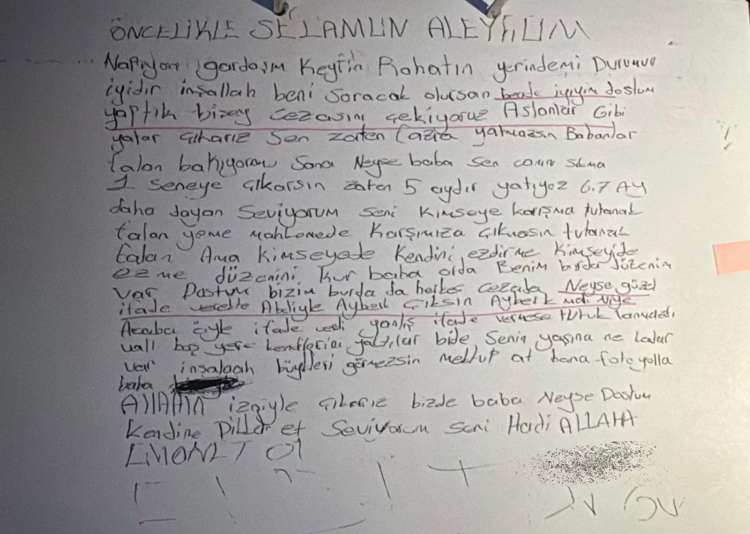 ÖNCELİKLE SELAMUN ALEYKÜM
Napıyon gardaşım Keyfin Rahatın yerindemi Durumun
iyidir inşallah beni Soracak olursan bende iyiyim dostum
yaptık bizey cezasını çekiyoruz Aslanlar Gibi
yatar çıkarız Sen zaten fazla yatmazsın Babanlar
falan bakıyorsa Sana Neyse baba sen canın sıkma
1 seneye çıkarsın zaten 5 aydır yatıyoz 6.7 AY
daha dayan Seviyorum seni Kimseye karışma tutanak
falan yeme mahkemede Karşımıza çıkmasın tutanak
falan Ama Kimseyede Kendini ezdirme Kimseyide
ezme düzenini kur baba orda Benim burda düzenim
var Dostum bizim burda da herkes cezada Neyse güzel
ifade Abiliyle Ayberk Çıksın Ayberk niye
Acaba öyle ifade verdi yanlış ifade vermese
boş yere kendilerini yaktılar bide Senin yaşına ne kadar
var inşalaah büyükleri görmezsin mektup at bana foto yolla
baba
Allahın izniyle çıkarız bizde baba Neyse Dostum
Kendine Dikkat et Seviyorum seni Hadi ALLAHA
EMANET Ol